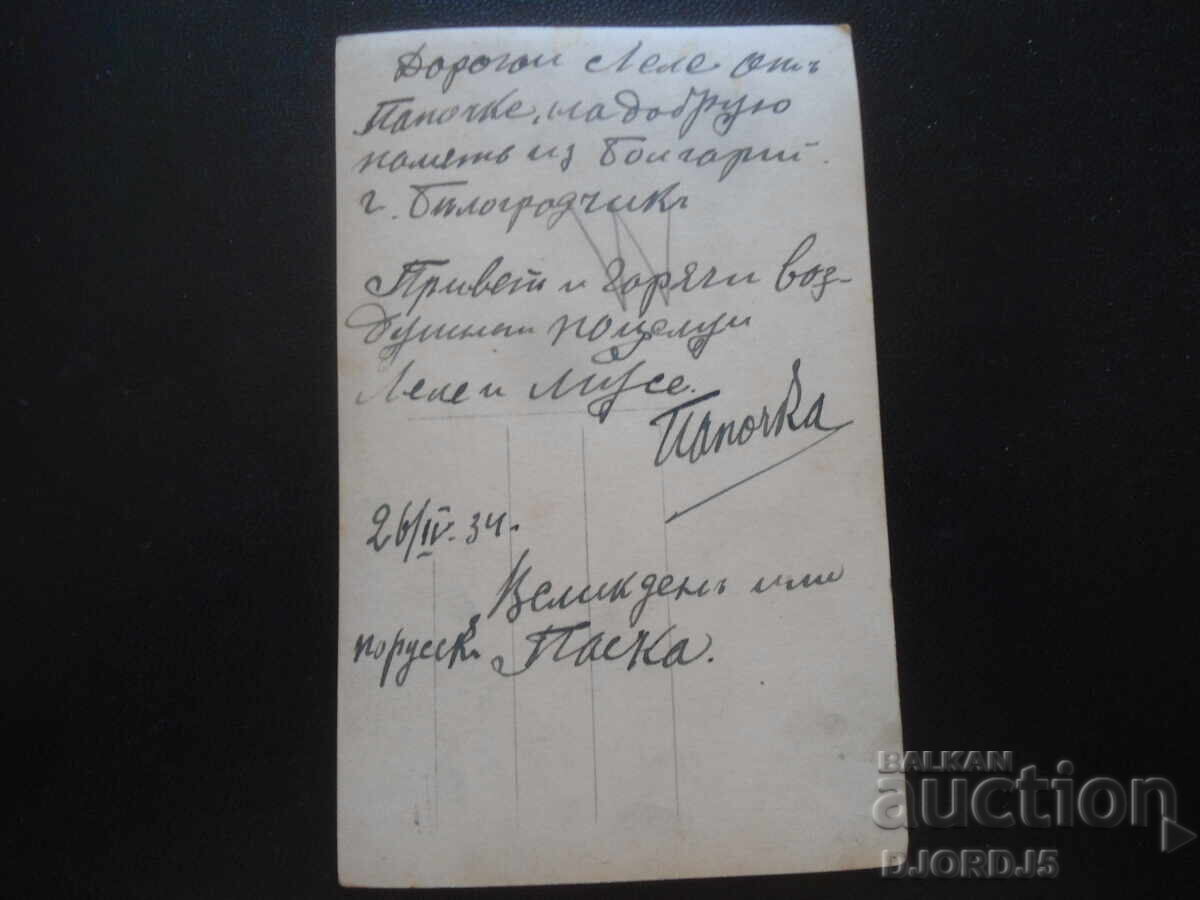 Дорогой Леле отъ
Папочке, на добрую
память из Болгарии.
г. Белоградчикъ
Привет и горячи воз-
душнаи поцелуи
Леле и Мусе.
Папочка
26/IV. 34.
Великденъ или
по русск. Паска.
BALKAN
auction
DJORDJ5